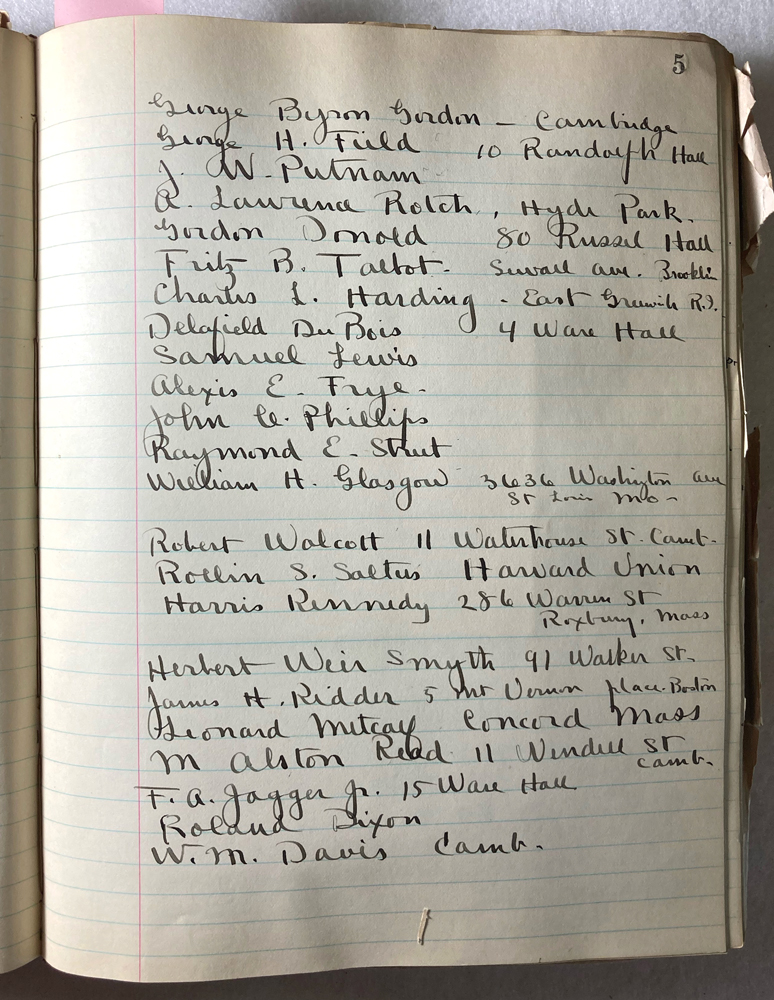 5
George Byron Gordon - Cambridge
George H. Field 10 Randolph Hall
J. W. Putnam
A. Lawrence Rotch, Hyde Park.
Gordon Donald 80 Russel Hall
Fritz B. Talbot. Sewall ave. Brooklin
Charles L. Harding - East Greenwich R.I.
Delafield Du Bois 4 Ware Hall
Samuel Lewis
Alexis E. Frye.
John C. Phillips
Raymond E. Street
William H. Glasgow 3636 Washington ave
St Louis Mo -
Robert Walcott 11 Waterhouse St. Camb.
Rollin S. Saltus Harvard Union
Harris Kennedy 286 Warren St
Roxbury, Mass
Herbert Weir Smyth 91 Walker St.
James H. Ridder 5 Mt Vernon place. Boston
Leonard Metcalf Concord Mass
M Alston Read 11 Wendell St
Camb.
F. A. Jagger Jr. 15 Ware Hall
Roland Dixon
W. M. Davis Camb.